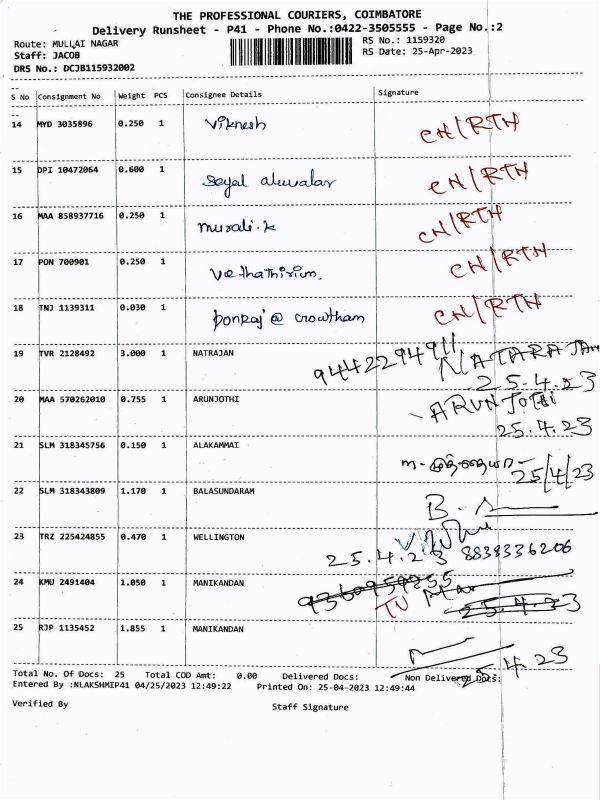 THE PROFESSIONAL COURIERS, COIMBATORE
Delivery Runsheet - P41 - Phone No.:0422-3505555 - Page No.:2
Route: MULLAI NAGAR
RS No.: 1159320
Staff: JACOB
RS Date: 25-Apr-2023
DRS No.: DCJB115932002
S No Consignment No Weight PCS Consignee Details Signature
14 MYD 3035896 0.250 1 Viknesh CH/RTH
15 DPI 10472064 0.600 1 Seyal aluvalar CH/RTH
16 MAA 858937716 0.250 1 murali.k CH/RTH
17 PON 700901 0.250 1 CH/RTH
18 TNJ 1139311 0.030 1 Ponraj @ Crowtham CH/RTH
19 TVR 2128492 3.000 1 NATRAJAN 9442294911 NATARAJAN
25.4.23
20 MAA 570262010 0.755 1 ARUNJOTHI ARUNJOTHI
25.4.23
21 SLM 318345756 0.150 1 ALAKAMMAI
25/4/23
22 SLM 318343809 1.170 1 BALASUNDARAM B.
23 TRZ 225424855 0.470 1 WELLINGTON
25.4.23 8838336206
24 KMU 2491404 1.050 1 MANIKANDAN
25.4.23
25 RJP 1135452 1.855 1 MANIKANDAN
25.4.23
Total No. Of Docs: 25 Total COD Amt: 0.00 Delivered Docs: Non Delivered Docs:
Entered By :NLAKSHMIP41 04/25/2023 12:49:22 Printed On: 25-04-2023 12:49:44
Verified By Staff Signature